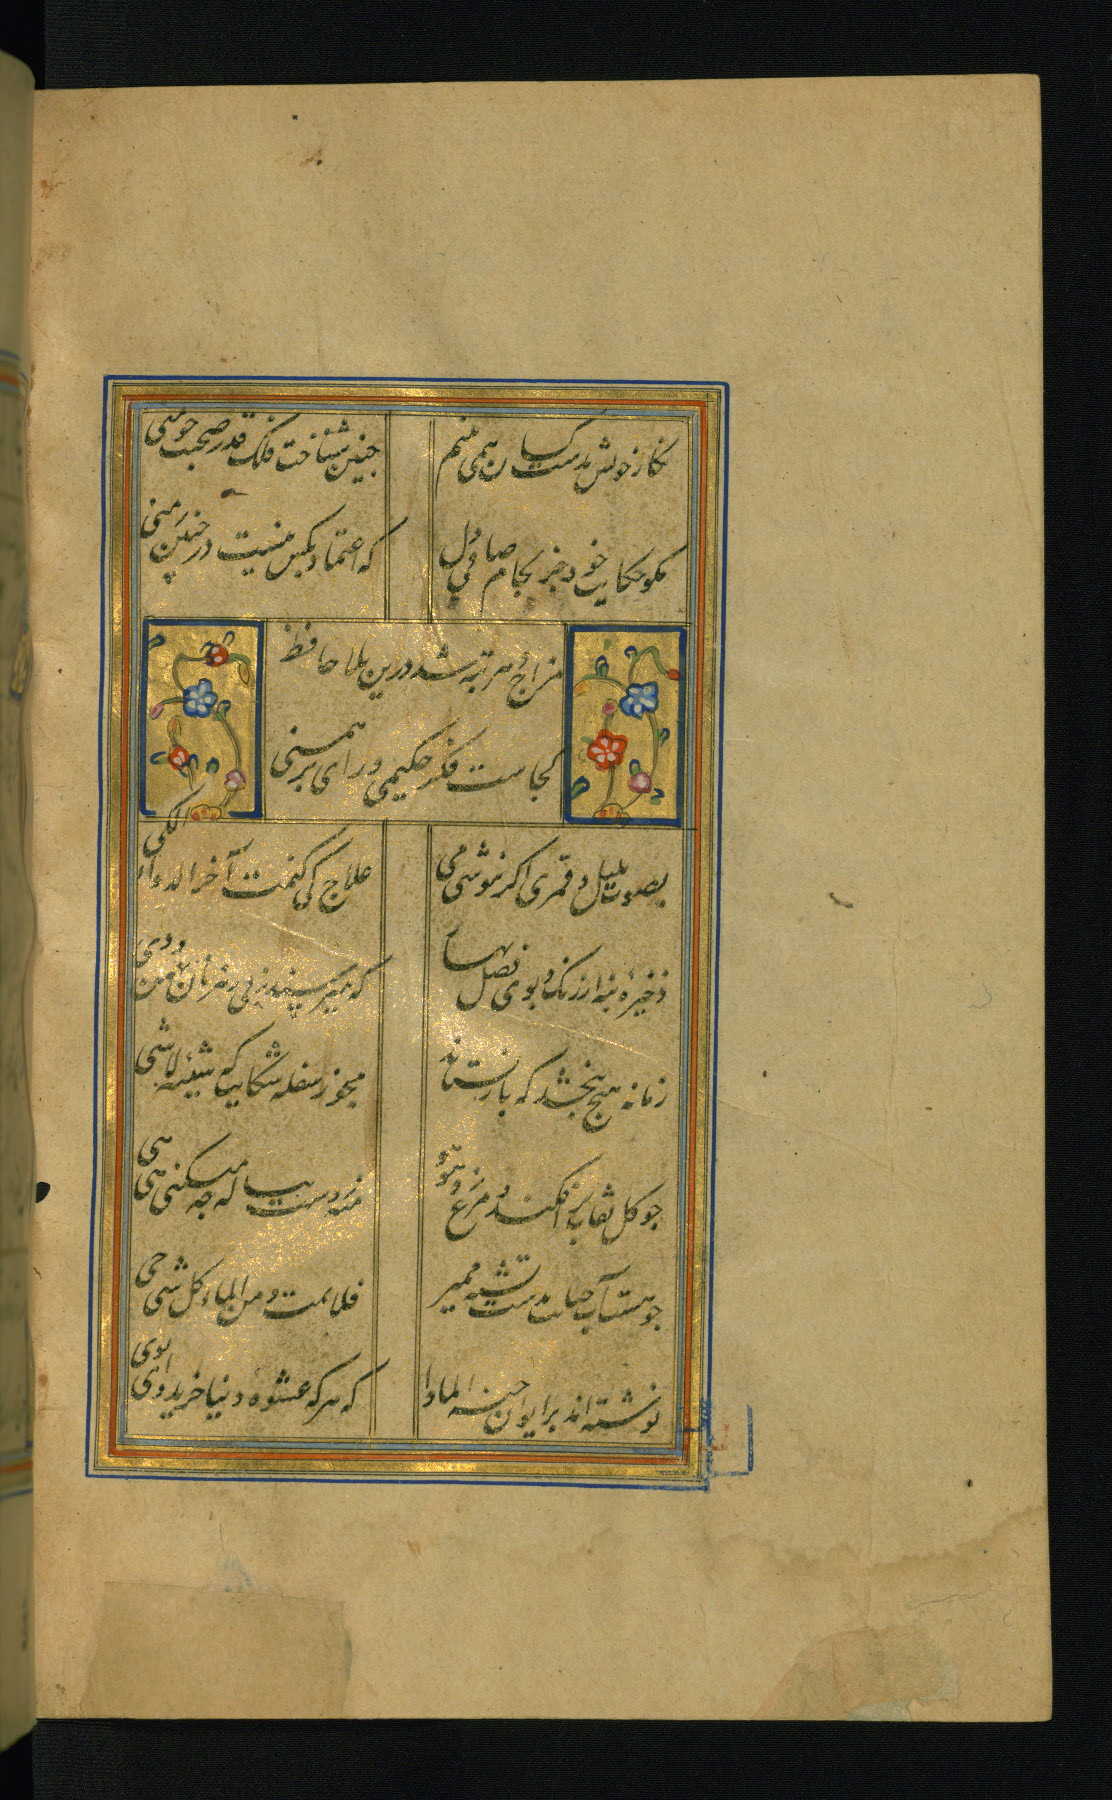 نکار خویش بدست کسان همی بینم
چنین شناخت فلک قدر صحبت چو منی
مکو حکایت خود جز بجام صافی دل
که اعتماد بکس نیست در چنین زمنی
مزاج مرتبه شد درین بلا حافظ
کجاست فکر حکیمی و رای برهمنی
بصوت بلبل و قمری اکر ننوشی می
علاج کی کنمت آخر الدواء الکی
ذخیرهٔ بنه از رنک و بوی فصل بهار
که میرسند ز پی رهزنان بهمن و دی
زمانه هیچ نبخشد که باز نستاند
مجو ز سفله که شیئه لاشی
چو کل نقاب برافکند و مرغ زد هوهو
منه ز دست پیاله چه میکنی هی هی
چو هست آب حیاتت بدست تشنه ممیر
فلا تمت و من الماء کل شی حی
نوشته‌اند بر ایوان جنه الماوا
که هر که عشوهٔ دنیا خرید وای بوی